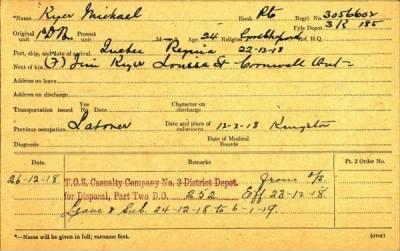 *Name Ryer Michael Rank Pte Regtl No. 3056602
File Depot 3/R 185
Original unit 1st D.B. Present unit Age 24 Religion Ref. H.Q.
Port, ship, and date of arrival Quebec Regina 22-12-18
Next of kin (F) Jim Ryer Louisa St Cornwall Ont-
Address on leave
Address on discharge
Transportation issued Yes No Date Character on discharge
Previous occupation Laborer Date and place of enlistment 12-3-18 Kingston
Diagnosis
Date Remarks Pt. 2 Order No.
26-12-18 T.O.S. Casualty Company No. 3 District Depot. From O/S
for Disposal, Part Two D.O. 252 Eff 23-12-18.
Leave & Sub. 24-12-18 to 6-1-19.
*—Name will be given in full; surname first. (OVER)